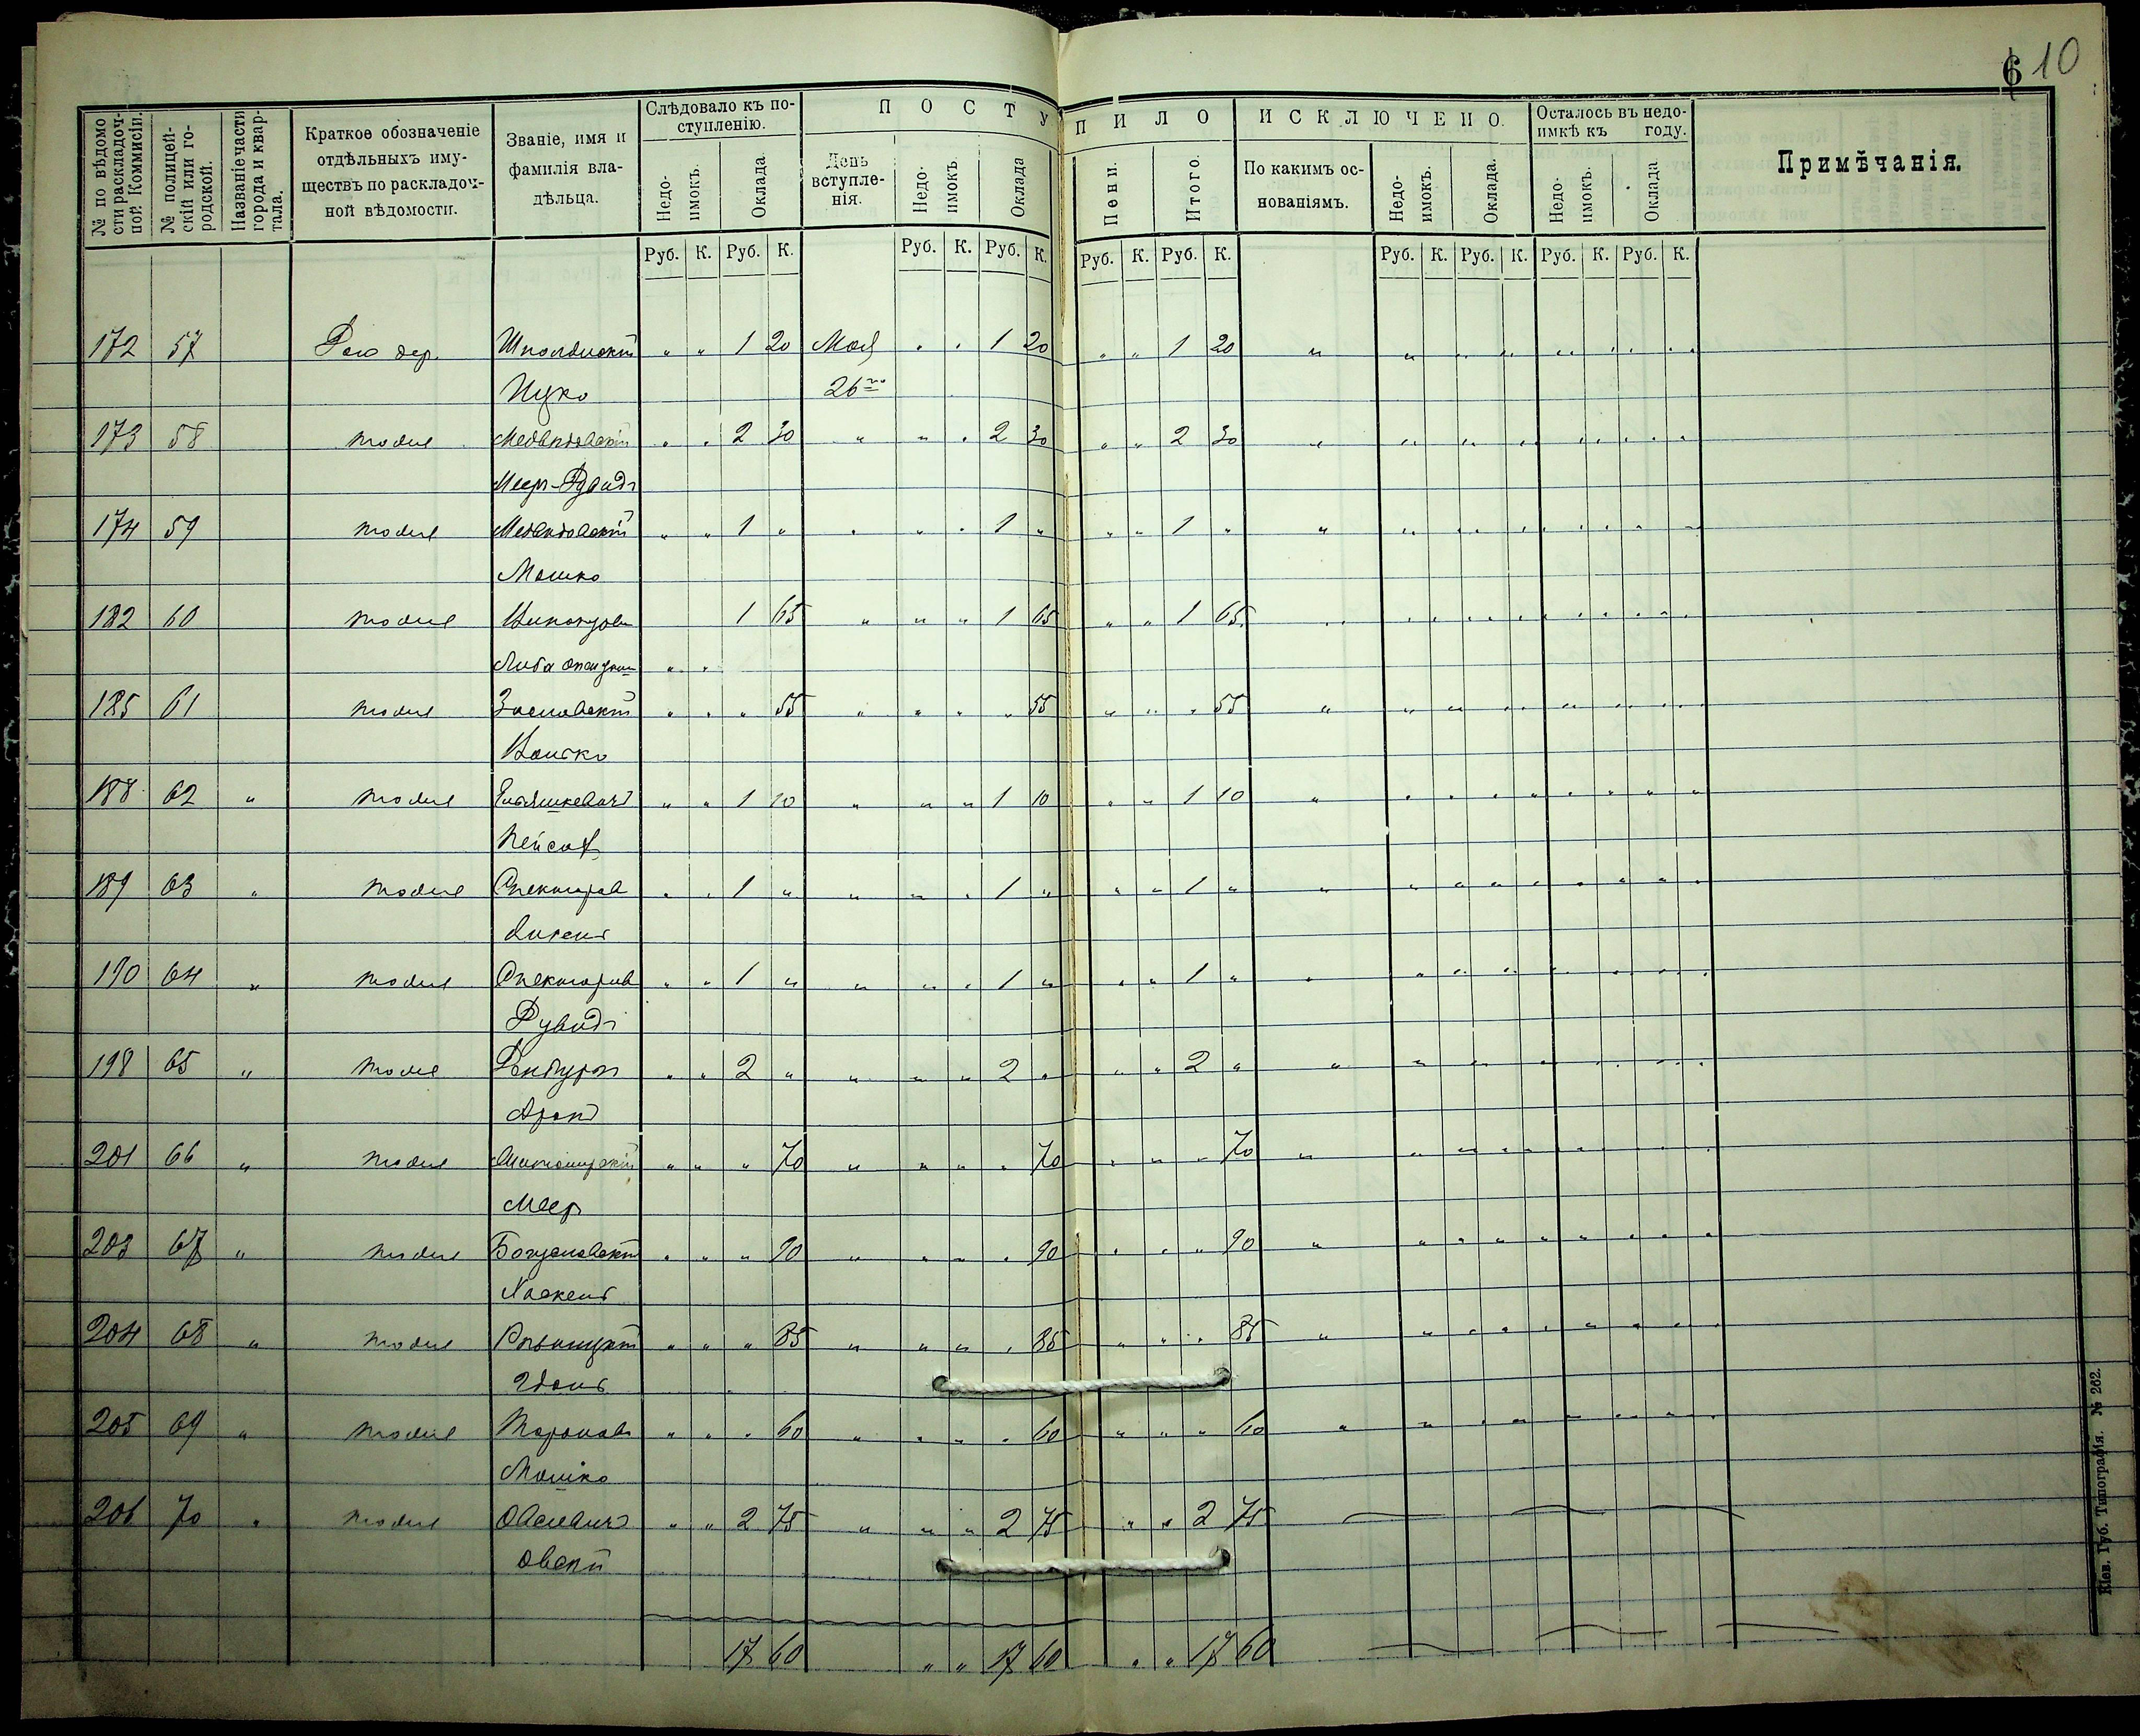 6 10
№ по вѣдомости раскладочной Коммисіи.
№ полицейскій или городской.
Названіе части города и квартала.
Краткое обозначеніе отдѣльныхъ имуществъ по раскладочной вѣдомости.
Званіе, имя и фамилія владѣльца.
Слѣдовало къ поступленію.
Недоимокъ.
Оклада.
ПОСТУПИЛО
День вступленія.
Недоимокъ.
Оклада
Пени.
Итого.
ИСКЛЮЧЕНО.
По какимъ основаніямъ.
Недоимокъ.
Оклада.
Осталось въ недоимкѣ къ году.
Недоимокъ.
Оклада
Примѣчанія.
Руб. К. Руб. К. Руб. К. Руб. К. Руб. К. Руб. К. Руб. К. Руб. К. Руб. К. Руб. К.
172 57 дер. Шполянскій " " 1 20 Мая " " 1 20 " " 1 20
Ицко 26го
173 58 тоже Медвѣдовскій " " 2 30 " " " 2 30 " " 2 30
Меер-Рувидъ
174 59 тоже Медвѣдовскій " " 1 " " " " 1 " " " 1 "
Мошко
182 60 тоже 1 65 " " " 1 65 " " 1 65
Либа
185 61 тоже Заславскій " " " 55 " " " " 55 " " " 55
188 62 " тоже " " 1 10 " " " 1 10 " " 1 10
Пейсах
189 63 " тоже Спекторов " " 1 " " " " 1 " " " 1 "
190 64 " тоже Спекторов " " 1 " " " " 1 " " " 1 "
Рувидъ
198 65 " тоже " " 2 " " " " 2 " " " 2 "
Аронъ
201 66 " тоже " " " 70 " " " " 70 " " " 70
Меер
203 67 " тоже Богуславскій " " " 90 " " " " 90 " " " 90
Хаскель
204 68 " тоже " " " 85 " " " " 85 " " " 85
205 69 " тоже " " " 60 " " " " 60 " " " 60
Мошко
206 70 " тоже Овсіевичъ " " 2 75 " " " 2 75 " " 2 75
Овсій
17 60 " " 17 60 " " 17 60
Кіев. Губ. Типографія. № 262.